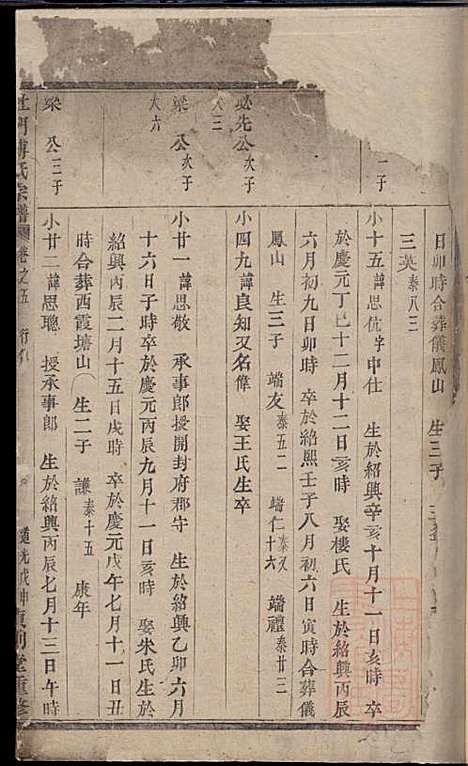 日卯時合葬儀鳳山　生三子
三英泰八三
一子　小十五諱思伉字中仕　生於紹興辛亥十月十一日亥時　卒
於慶元丁巳十二月十二日亥時　娶樓氏　生於紹興丙辰
六月初九日卯時　卒於紹熙壬子八月初六日寅時合葬儀
鳳山　生三子　端友泰五二　端仁泰又十六　端禮泰廿三
必先公次子　小四九諱良知又名偉　娶王氏生卒
大三
梁　公次子　小廿一諱思敬　承事郎授開封府郡守　生於紹興乙卯六月
大六　十六日子時卒於慶元丙辰九月十一日亥時　娶朱氏生於
紹興丙辰二月十五日戌時　卒於慶元戊午七月十一日丑
時合葬西霞塘山　生二子　謙泰十五　康年
梁　公三子　小廿二諱思聰　授承事郎　生於紹興丙辰七月十三日午時
傅氏宗譜　卷之五　行　道光戊申貞利堂重修